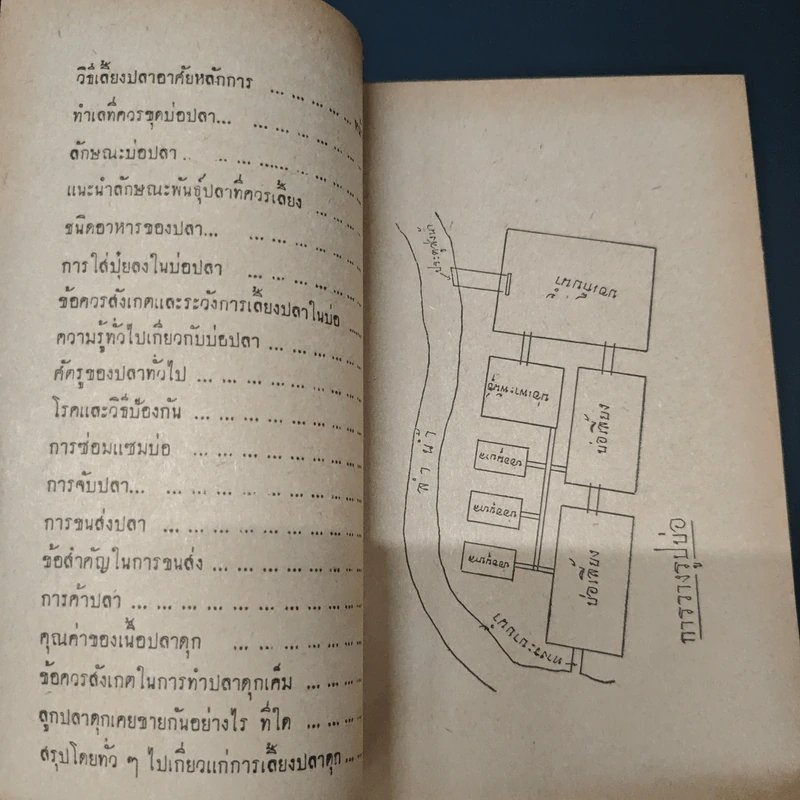 วิธีเลี้ยงปลาอาศัยหลักการ ... ... ... ...
ทำเลที่ควรขุดบ่อปลา... ... ... ... ...
ลักษณะบ่อปลา .. ... ... ...... ... ...
แนะนำลักษณะพันธุ์ปลาที่ควรเลี้ยง ... ...
ชนิดอาหารของปลา... ... ... ... ... ...
การใส่ปุ๋ยลงในบ่อปลา ... ... ... ... ...
ข้อควรสังเกตและระวังการเลี้ยงปลาในบ่อ
ความรู้ทั่วไปเกี่ยวกับบ่อปลา ... ... ... ...
ศัตรูของปลาทั่วไป ... ... ... ... ... ...
โรคและวิธีป้องกัน ... ... ... ... ... ...
การซ่อมแซมบ่อ ... ... ... ... ... ...
การจับปลา... ... ... ... ... ... ... ...
การขนส่งปลา ... ... ... ... ... ... ...
ข้อสำคัญในการขนส่ง ... ... ... ... ... ...
การค้าปลา ... ... ... ... ... ... ... ...
คุณค่าของเนื้อปลาดุก ... ... ... ... ...
ข้อควรสังเกตในการทำปลาดุกเค็ม ... ... ...
ลูกปลาดุกเคยขายกันอย่างไร ที่ใด ... ... ...
สรุปโดยทั่ว ๆ ไปเกี่ยวแก่การเลี้ยงปลาดุก ...
การวางรูปบ่อ
บ่อเก็บน้ำ
ประตูน้ำ
บ่อเพาะพันธุ์
บ่อเลี้ยง
บ่ออนุบาล
บ่ออนุบาล
บ่ออนุบาล
บ่อเลี้ยง
ลำน้ำ
ทางระบายน้ำ